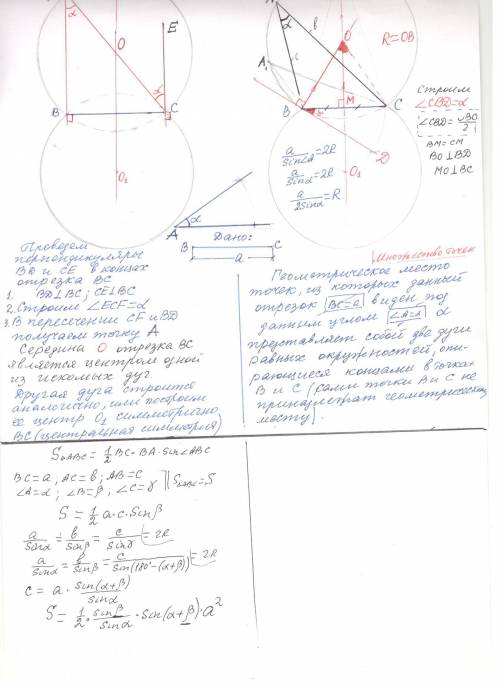 α
E
O
α
B
C
O₁
α
b
c
O
R=OB
A₁
B
M
C
α
D
O₁
Строим
∠CBD=α
BM=CM
BO⊥BD
MO⊥BC
a/sin∠A=2R
a/sinα=2R
a/2sinα=R
A
α
Дано:
B C
a
Проведем
перпендикуляры
BD и CE в концах
отрезка BC
1. BD⊥BC; CE⊥BC
2. Строим ∠ECF=α
3. В пересечении CF и BD
получаем точку A
Середина O отрезка BC
является центром одной
из искомых дуг.
Другая дуга строится
аналогично, или построим
ее центр O₁ симметрично
BC (центральная симметрия)
Множество точек
Геометрическое место
точек, из которых данный
отрезок BC=a виден под
данным углом ∠A=α
представляет собой две дуги
равных окружностей, опи-
рающиеся концами в точках
B и C (сами точки B и C не
принадлежат геометрическому
месту).
S△ABC = 1/2 BC·BA·sin∠ABC
BC=a; AC=b; AB=c
∠A=α; ∠B=β; ∠C=γ S△ABC=S
S=1/2 a·c·sinβ
a/sinα = b/sinβ = c/sinγ = 2R
a/sinα = b/sinβ = c/sin(180°-(α+β)) = 2R
c = a· sin(α+β)/sinα
S= 1/2· sinβ/sinα · sin(α+β)·a²